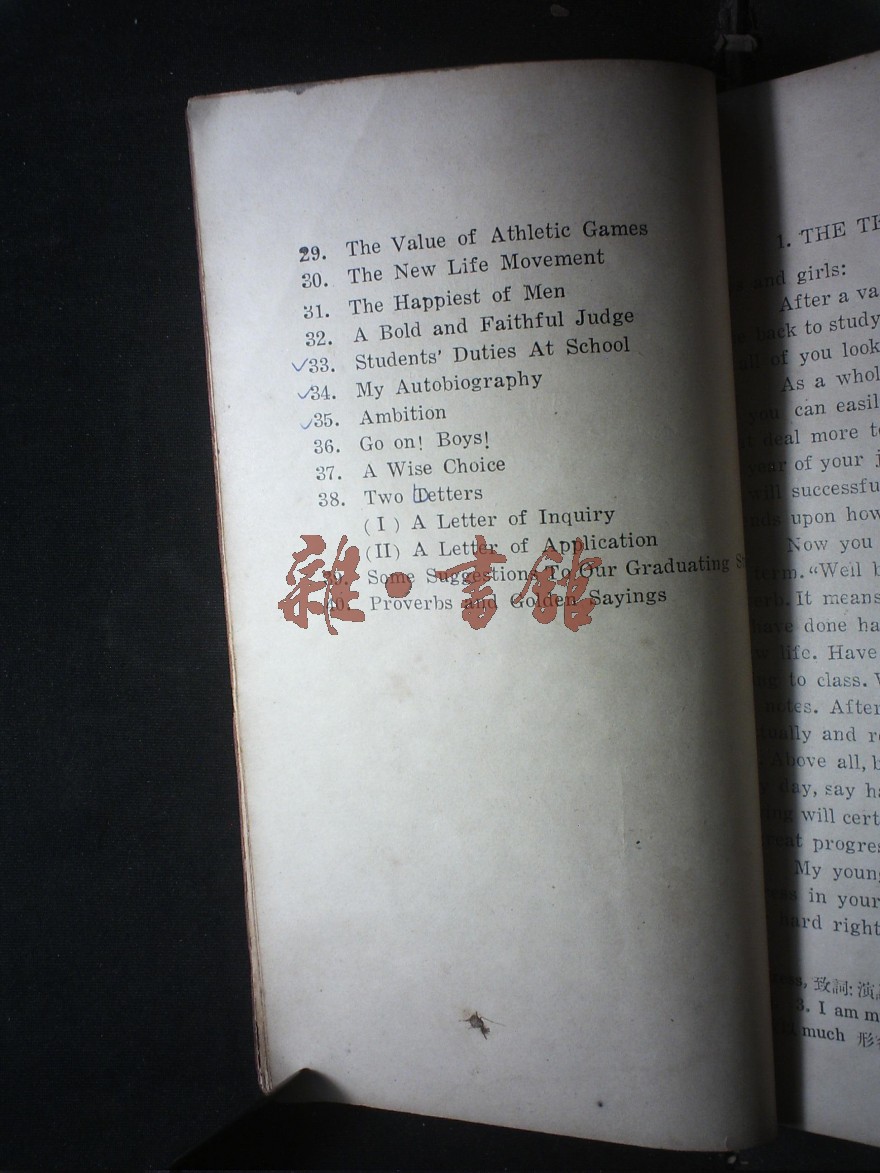 29. The Value of Athletic Games
30. The New Life Movement
31. The Happiest of Men
32. A Bold and Faithful Judge
33. Students' Duties At School
34. My Autobiography
35. Ambition
36. Go on! Boys!
37. A Wise Choice
38. Two Letters
(I) A Letter of Inquiry
(II) A Letter of Application
39. Some Suggestions To Our Graduating
40. Proverbs and Golden Sayings
雜·書館
1. THE
and girls:
After a
back to study
of you look
As a
you can
deal more
year of your
will successfu
upon how
Now you
term. “Well
It means
have done
life. Have
to class.
notes. After
and
Above all,
day, say
will
progres
My young
in your
hard right
致詞:演
3. I am
much 形